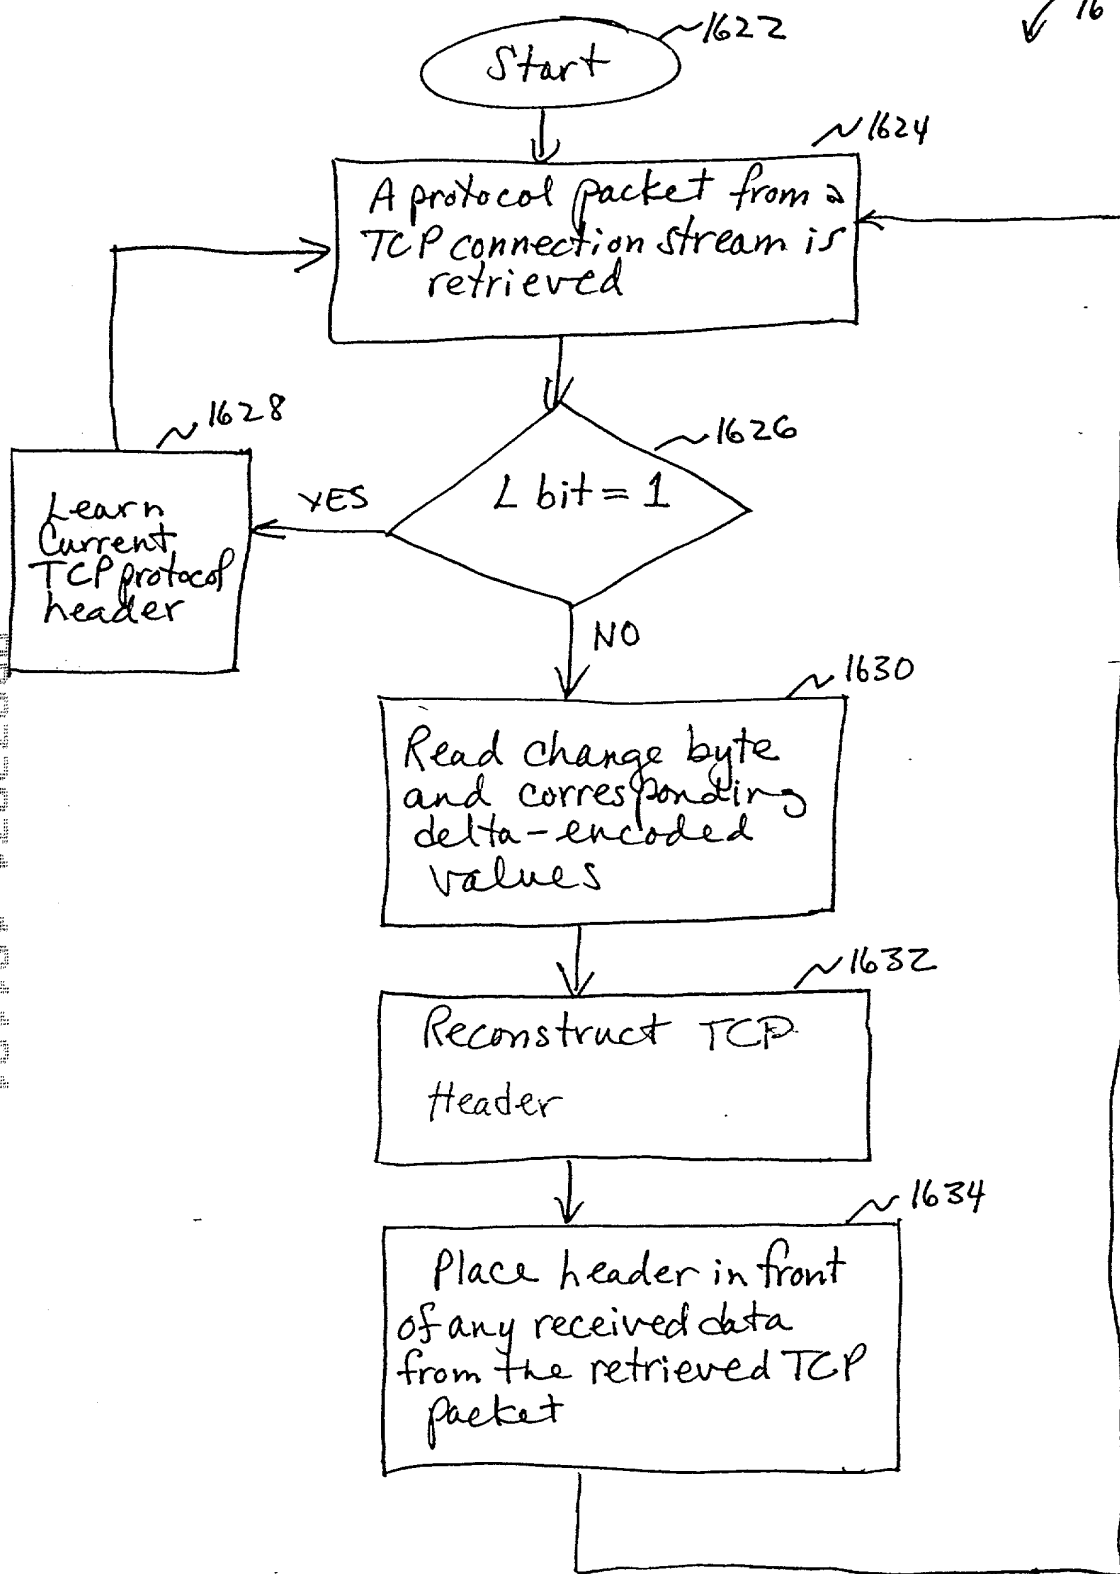 16
1622
Start
1624
A protocol packet from a
TCP connection stream is
retrieved
1628
1626
L bit = 1
YES
Learn
Current
TCP protocol
header
NO
1630
Read change byte
and corresponding
delta-encoded
values
1632
Reconstruct TCP
Header
1634
Place header in front
of any received data
from the retrieved TCP
packet